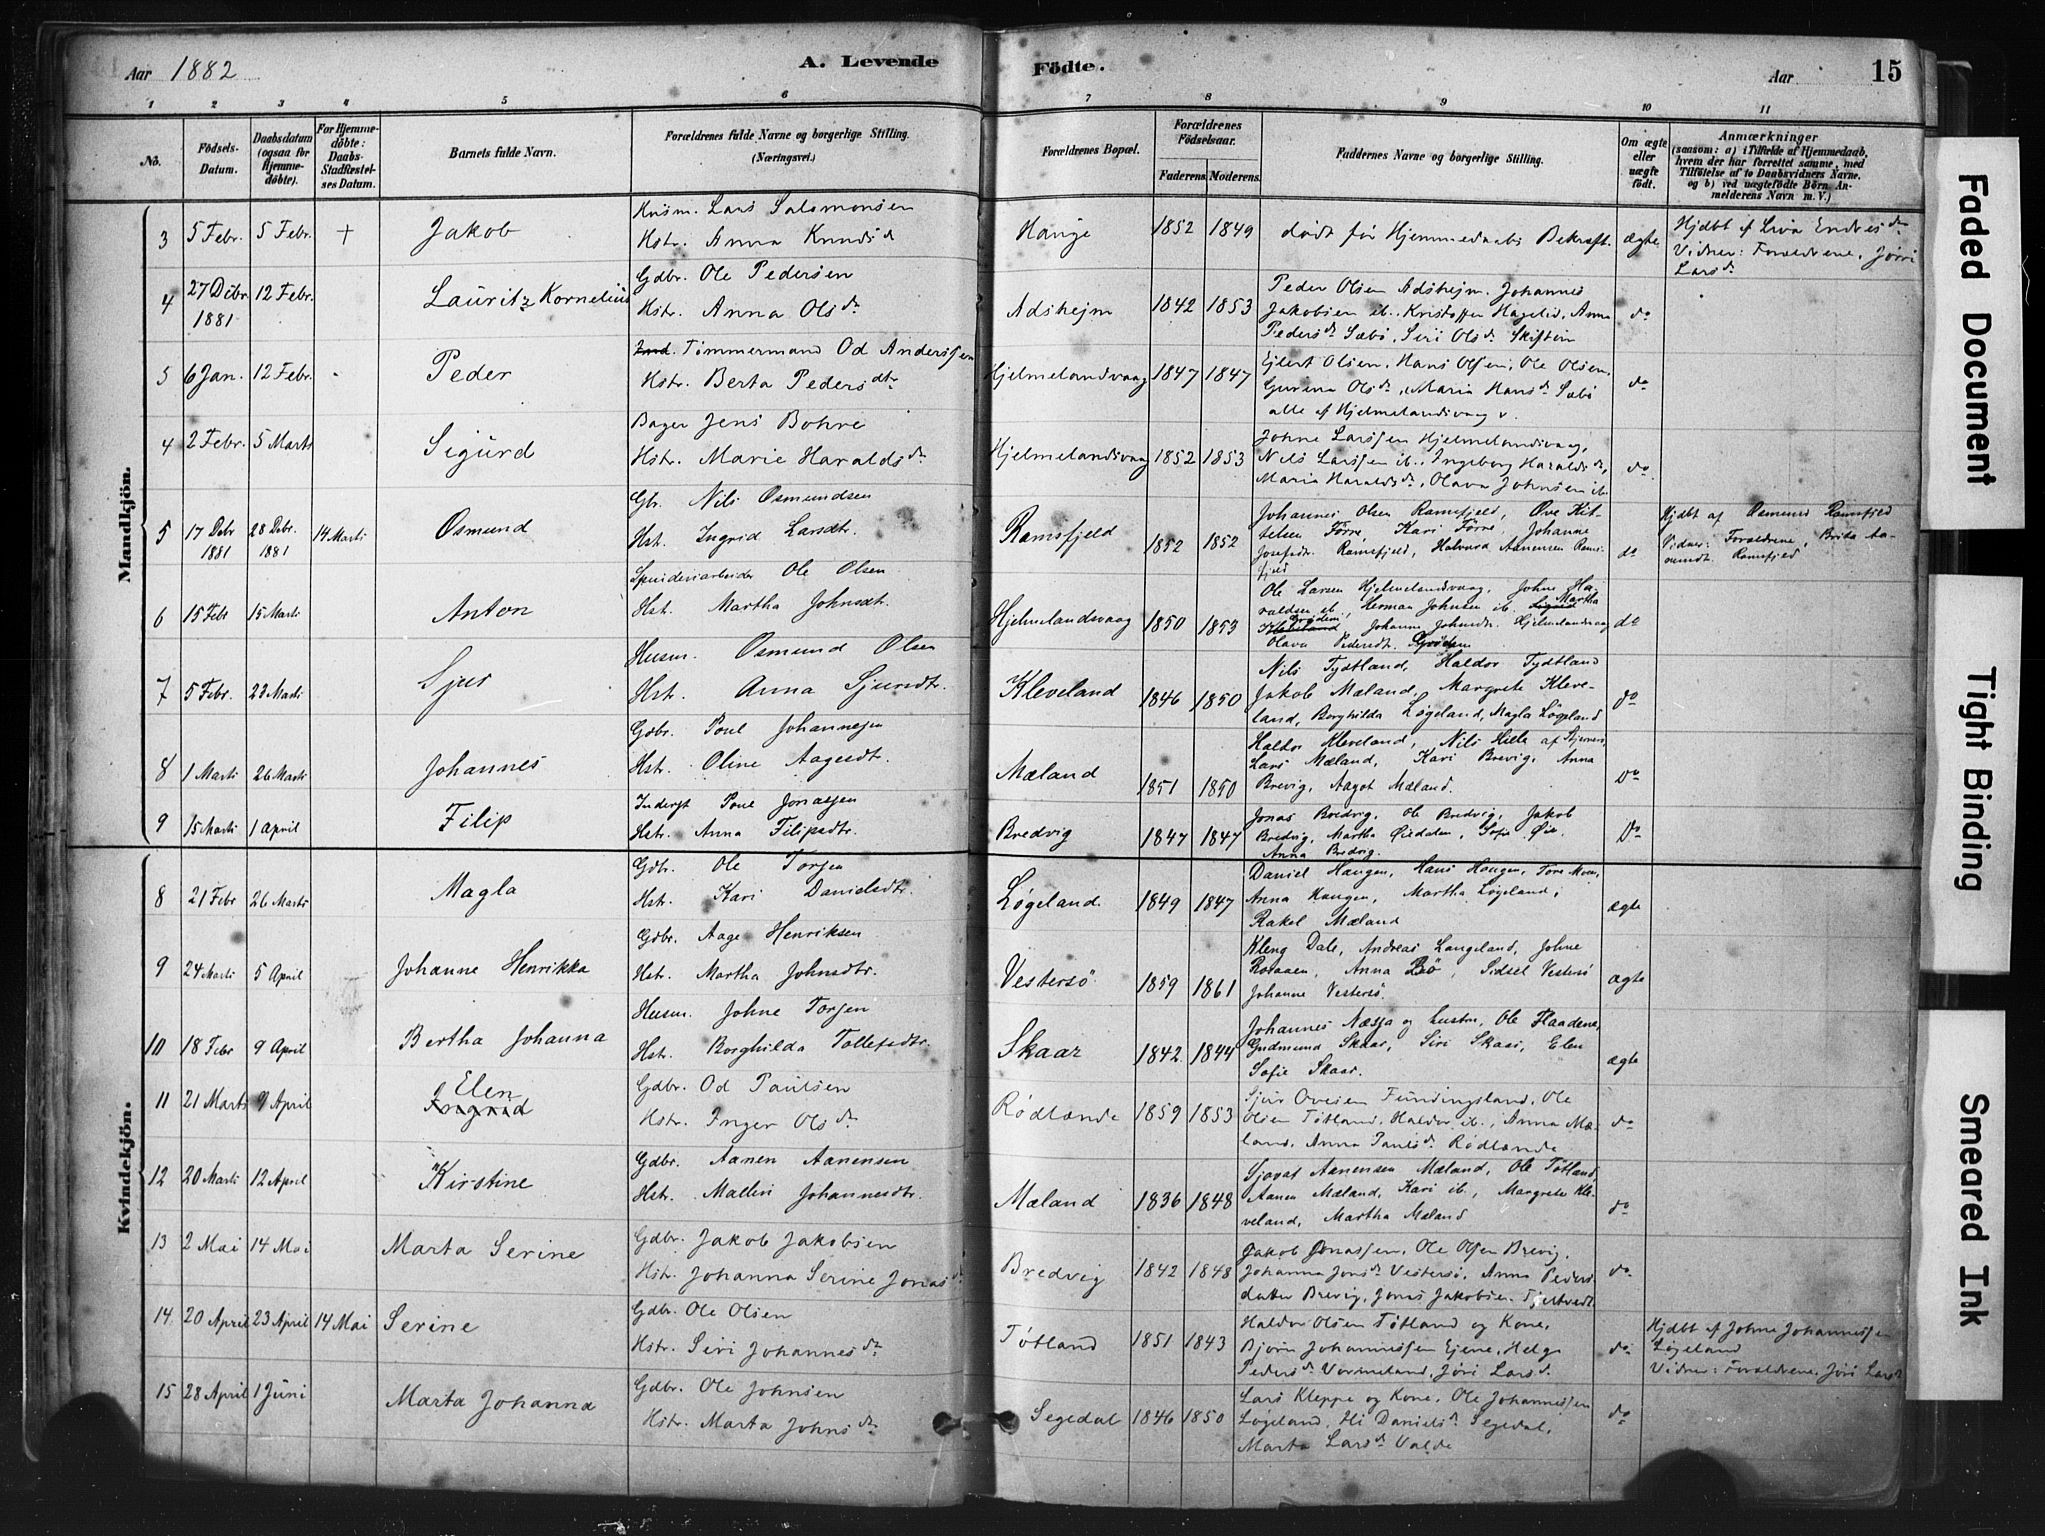 Aar 1882
A. Levende
Födte.
Aar
15
1 2 3 4 5 6 7 8 9 10 11
No.
Födsels-Datum.
Daabsdatum (ogsaa for Hjemme-døbte).
For Hjemme-døbte: Daabs-Stadfæstelses Datum.
Barnets fulde Navn.
Forældrenes fulde Navne og borgerlige Stilling. (Næringsvei.)
Forældrenes Bopæl.
Forældrenes Fødselsaar. Faderens. Moderens.
Faddernes Navne og borgerlige Stilling.
Om ægte eller uægte født.
Anmærkninger (saasom: a) i Tilfælde af Hjemmedaab, hvem der har forrettet samme, med Tilföielse af to Daabsvidners Navne. og b) ved uægtefödte Börn Anmelderens Navn m. V.)
Mandkjön.
3 5 Febr. 5 Febr. + Jakob
Husm. Lars Salomonsen
Hstr. Anna Knudsdr
Hauge 1852 1849 dødt før Hjemmedaabs Bekræft. ægte
Hjdbt af Liva Endresdr
Vidner: Forældrene, Jørri
Larsdr
4 27 Dcbr. 1881 12 Febr. Lauritz Kornelius
Gdbr. Ole Pedersen
Hstr. Anna Olsdr
Adshejm 1842 1853
Peder Olsen Adshejm. Johannes
Jakobsen ib., Kristoffer Hagelid, Anna
Pedersdr Sæbö, Siri Olsdr Skiftun
do
5 6 Jan. 12 Febr. Peder
Tömmermand Od Anderssen
Hstr. Berta Pedersdtr
Hjelmelandsvaag 1847 1847
Ejlert Olsen, Hans Olsen, Ole Olsen,
Gurina Olsdr, Maria Hansdr Sæbö
alle af Hjelmelandsvaag
do
4 2 Febr. 5 Marts Sigurd
Bager Jens Bohne
Hstr. Marie Haraldsdr
Hjelmelandsvaag 1852 1853
Johne Larssen Hjelmelandsvaag,
Nils Larssen ib., Ingeborg Haraldsdr,
Maria Haraldsdr, Olava Johnsen ib.
do
5 17 Dcbr 1881 28 Dcbr. 1881 14 Marts Osmund
Gbr. Nils Osmundsen
Hst. Ingrid Larsdt.
Ramsfjeld 1852 1852
Johannes Olsen Ramsfjeld, Ove Kit-
telsen Førre, Kari Førre, Johanne
Josefsdt. Ramsfjeld, Halvard Aanensen Rams-
fjeld
do
Hjdbt af Osmund Ramsfjeld
Vidner: Forældrene, Brita Aa-
Ramsfjeld
6 15 Febr 15 Marts Anton
Ole Olsen
Hst. Martha Johnsdt.
Hjelmelandsvaag 1850 1853
Ole Larsen Hjelmelandsvaag, Johne Ha-
raldsen ib., Herman Johnsen ib. Martha
Johanne Johnsdt. Hjelmelandsvaag
Olava Pedersdt.
do
7 5 Febr. 22 Marts Sjur
Husm. Osmund Olsen
Hst. Anna Sjursdtr.
Kleveland 1846 1850
Nils Tydtland, Haldor Tydtland
Jakob Mæland, Margrete Kleve-
land, Borghilda Løgeland, Magla Løgeland
do
8 1 Marts 26 Marts Johannes
Gdbr. Poul Johannesen
Hst. Oline Aagesdt.
Mæland 1851 1850
Haldor Kleveland, Nils Hiele af
Lars Mæland, Kari Brevig, Anna
Brevig, Aagot Mæland.
Do
9 15 Marts 1 april Filip
Inderst Poul Jonassen
Hstr. Anna Filipsdtr.
Bredvig 1847 1847
Jonas Bredvig, Ole Bredvig, Jakob
Bredvig, Martha
Anna Bredvig.
Do
Kvindekjön.
8 21 Febr 26 Marts Magla
Gdbr. Ole Torsen
Hst. Kari Danielsdtr.
Løgeland. 1849 1847
Daniel Haugen, Hans Haugen, Tore
Anna Haugen, Martha Løgeland,
Rakel Mæland
ægte
9 24 Marts 5 April Johanne Henrikka
Gdbr. Aage Henriksen
Hst. Martha Johnsdtr.
Vestersö 1859 1861
Kleng Dale, Andreas Langeland, Johne
Anna Bö Sidsel Vestersö
Johanne Vestersö.
ægte
10 18 Febr 9 April Bertha Johanna
Husm. Johne Torsen
Hst. Borghilda Tollefsdtr.
Skaar 1842 1844
Johannes Næsja og hustru, Ole Flaadene,
Gudmund Skaar, Siri Skaar, Elen
Sofie Skaar.
ægte
11 21 Marts 9 April Elen Ingrid
Gdbr. Od Paulsen
Hst. Inger Olsdr
Rödlande 1859 1853
Sjur Ovesen Fundingsland, Ole
Olsen Tøtland, Haldor ib., Anna Mæ-
land, Anna Paulsdr Rödlande
do
12 20 Marts 12 April Kirstine
Gdbr. Aanen Aanensen
Hstr. Malleri Johannesdtr.
Mæland 1836 1848
Sjovat Aanensen Mæland, Ole Tøtland,
Aanen Mæland, Kari ib., Margrete Kle-
veland, Martha Mæland
do
13 2 Mai 14 Mai Marta Serine
Gdbr. Jakob Jakobsen
Hstr. Johanna Serine Jonasdr
Bredvig 1842 1848
Jakob Jonassen, Ole Olsen Brevig,
Johanna Jonsdr Vestersö, Anna Peders-
datter Brevig, Jonas Jakobsen
do
14 20 April 23 April 14 Mai Serine
Gdbr. Ole Olsen
Hstr. Siri Johannesdr
Tøtland 1851 1843
Haldor Olsen Tøtland og Kone,
Bjørn Johannessen Ejene, Helga
Pedersdr Vormeland, Jøri Larsdr
do
Hjdbt af Johne Johannessen
Løgeland
Vidner: Forældrene, Jøri Larsdr
15 28 April 1 Juni Marta Johanna
Gdbr. Ole Johnsen
Hstr. Marta Johnsdr
Segedal 1846 1850
Lars Kleppe og Kone, Ole Johannessen
Løgeland, Hi Danielsdr Segedal,
Marta Larsdr Valde
do
Faded Document
Tight Binding
Smeared Ink